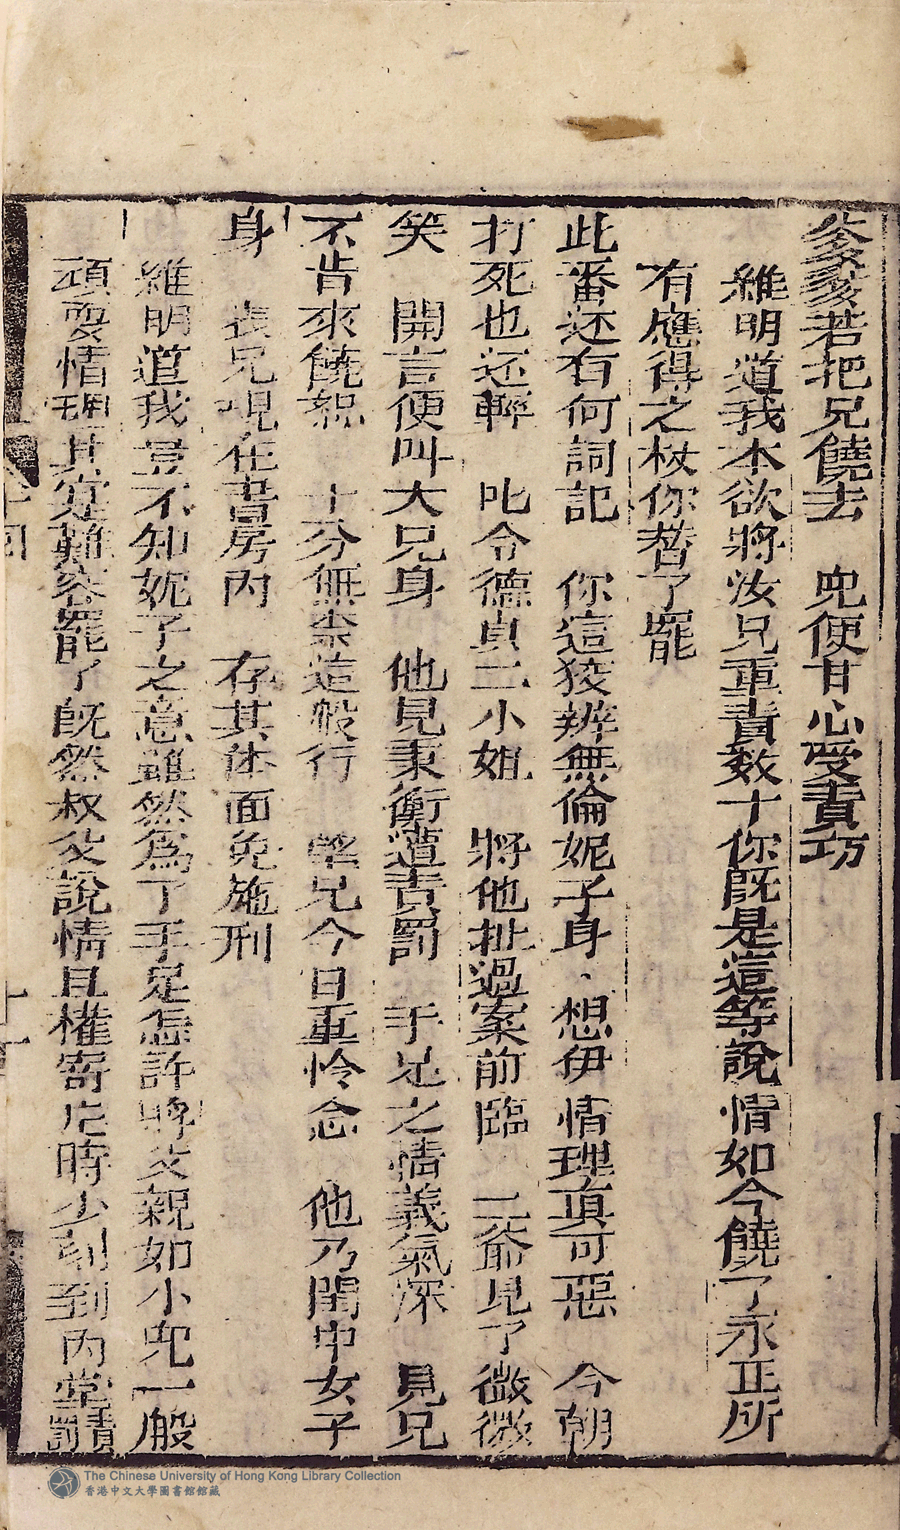 爹爹若把兄饒去　兒便甘心受責巧
維明道我本欲將汝兄重責数十你既是這等說情如今饒了永正所
有應得之杖你替了罷
此番还有何詞記　你這狡辨無倫妮子身　想伊情理真可惡　今朝
打死也还輕　叱令德貞二小姐　將他扯過案前臨　二爺見了微微
笑　開言便叫大兄身　他見秉衡遭責罰　手足之情義氣深　見兄
不肯來饒恕　十分無奈這般行　望兄今日重怜念　他乃閨中女子
身　表兄現在書房內　存其体面免施刑
維明道我豈不知妮子之意雖然為了手足怎許將父親如小兒一般
頑耍情理其寔難容罷了既然叔父說情且權寄片時少刻到內堂責罰
十四
十一
The Chinese University of Hong Kong Library Collection
香港中文大學圖書館館藏